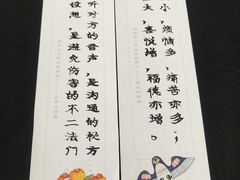 小，烦恼多，痛苦亦多；
大，喜悦增，福德亦增。
听对方的音声，是沟通的秘方
设想，是避免伤害的不二法门